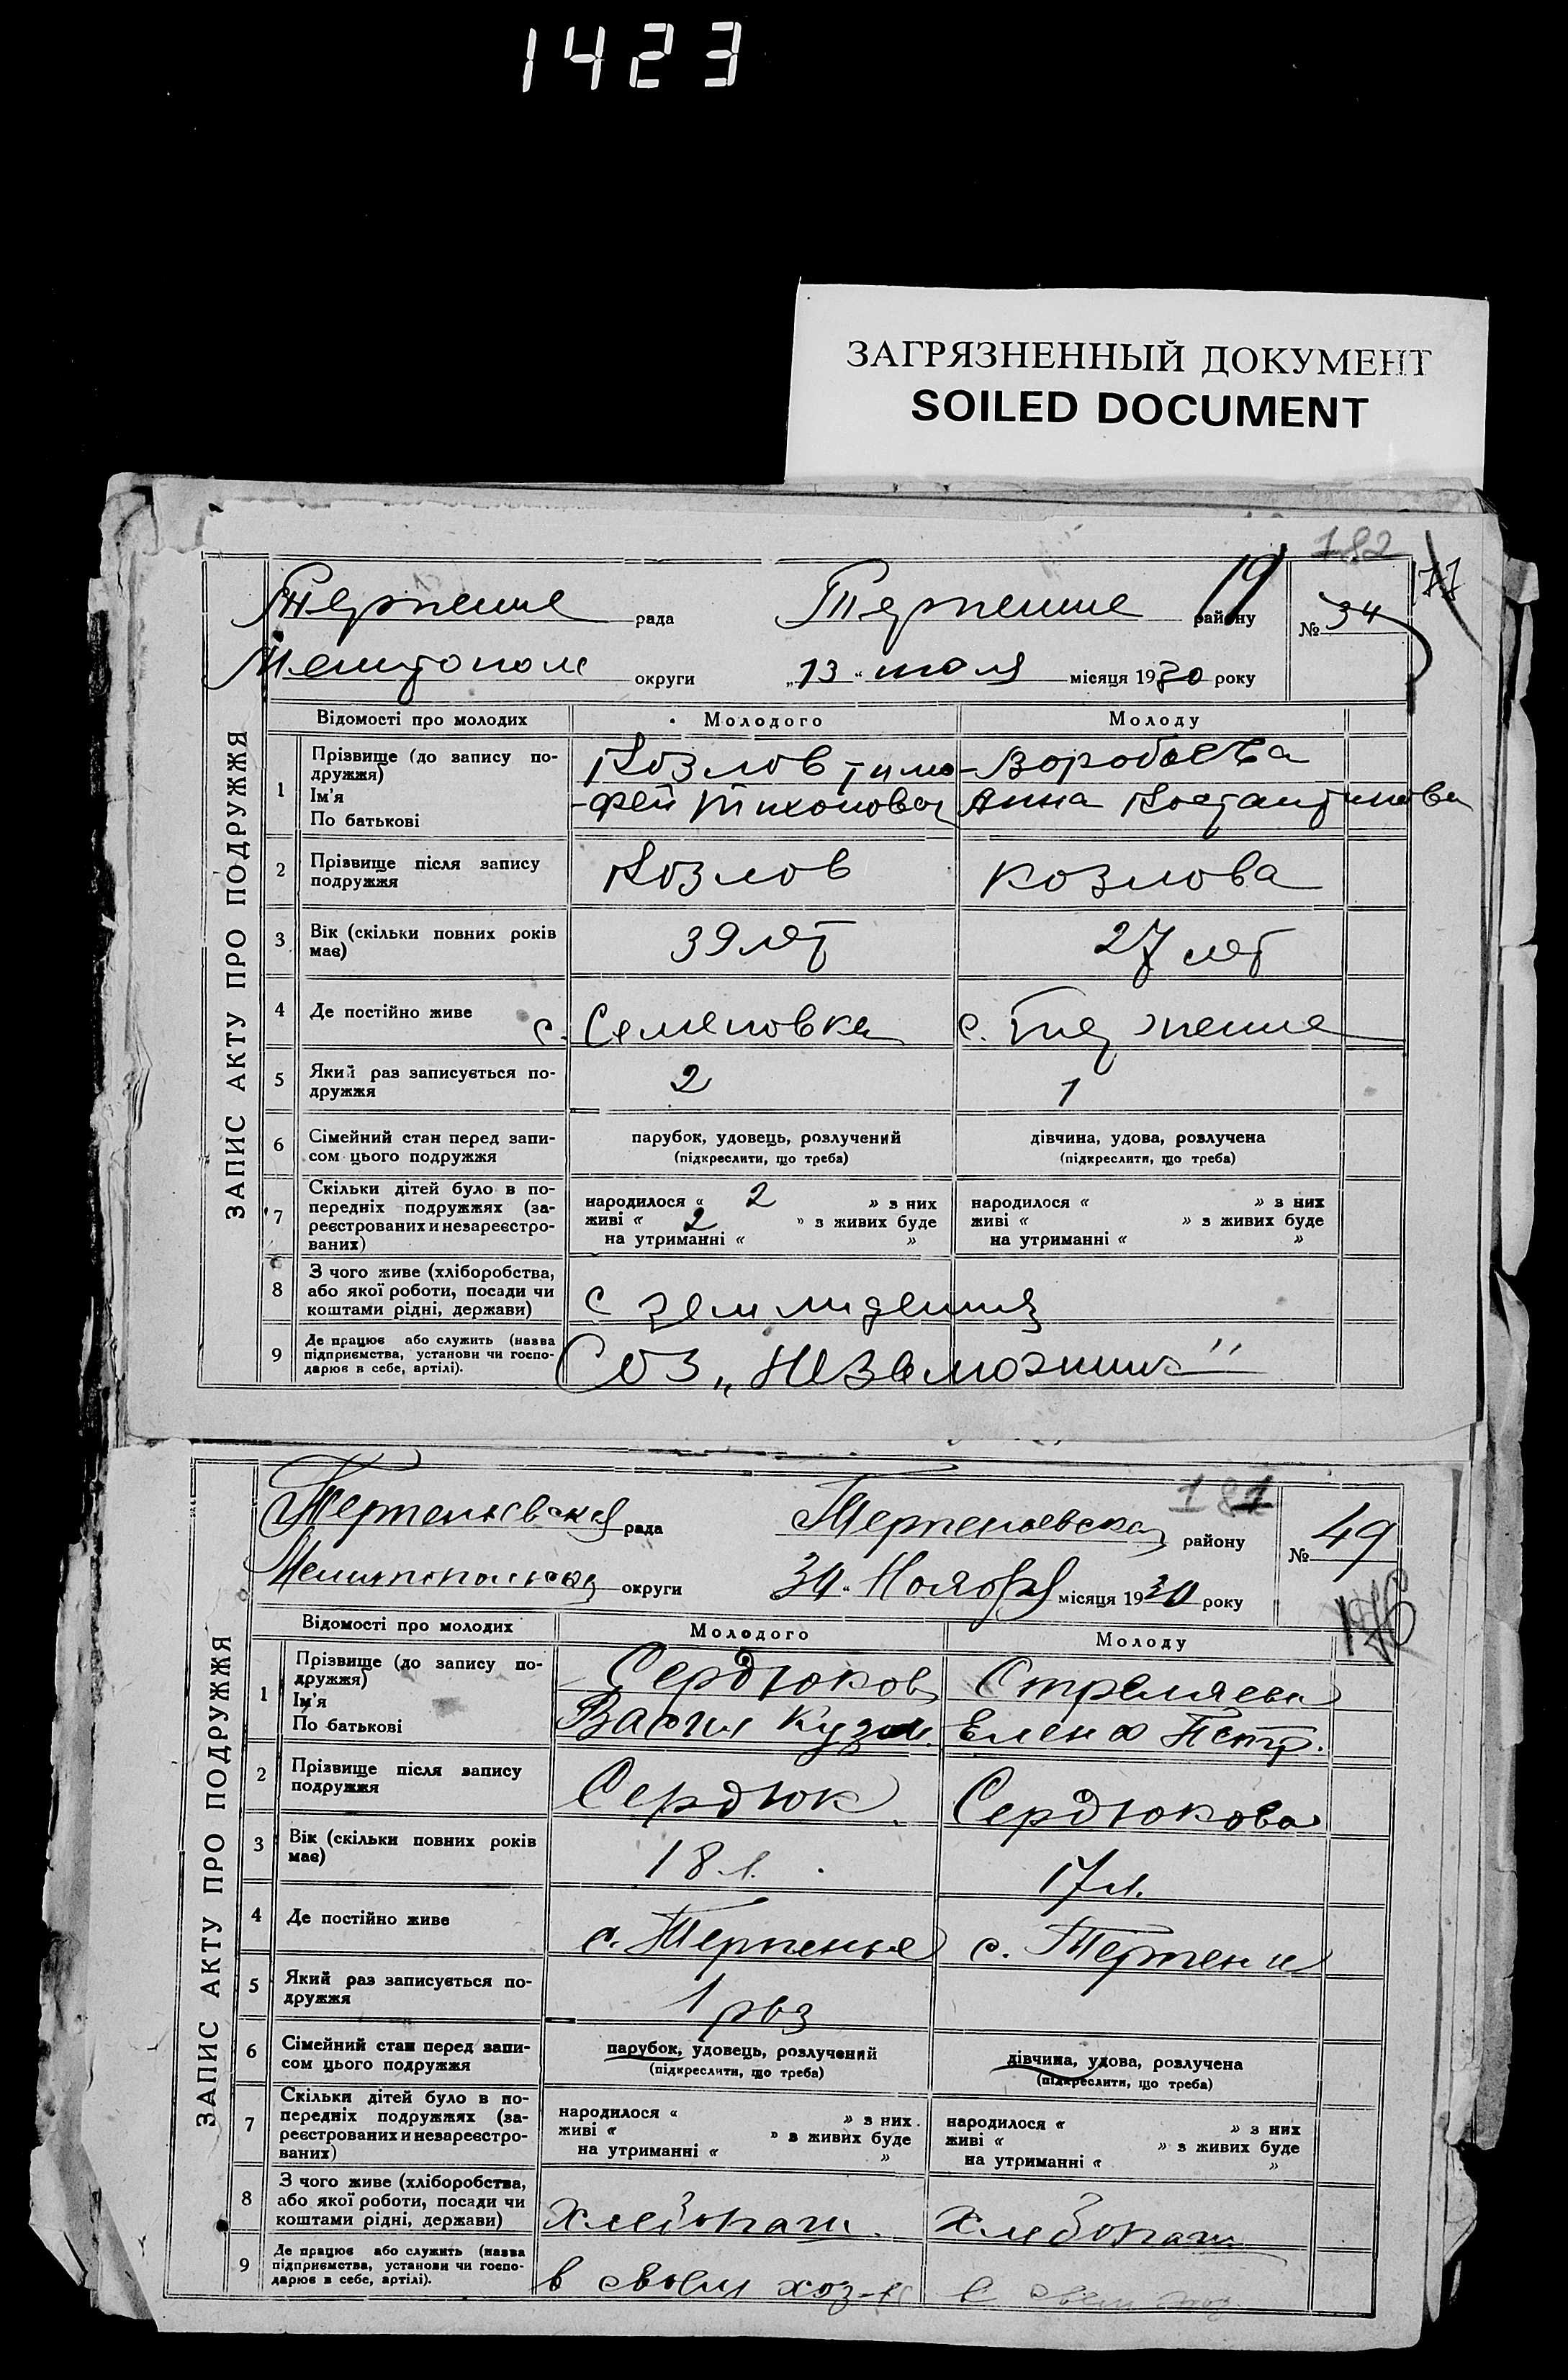 1423
ЗАГРЯЗНЕННЫЙ ДОКУМЕНТ
SOILED DOCUMENT
182
ЗАПИС АКТУ ПРО ПОДРУЖЖЯ
Терпение рада Терпение району № 34
19
Мелитопол округи „13“ июля місяця 1930 року
Відомості про молодих Молодого Молоду
1 Прізвище (до запису подружжя) Ім'я По батькові
Козлов Тимо- Воробьева
-фей Тихонович Анна Костантинова
2 Прізвище після запису подружжя Козлов Козлова
3 Вік (скільки повних років має) 39 лет 27 лет
4 Де постійно живе с. Семеновка с. Терпение
5 Який раз записується подружжя 2 1
6 Сімейний стан перед записом цього подружжя парубок, удовець, розлучений (підкреслити, що треба) дівчина, удова, розлучена (підкреслити, що треба)
7 Скільки дітей було в попередніх подружжях (зареєстрованих и незареєстрованих)
народилося « 2 » з них народилося « » з них
живі « 2 » з живих буде живі « » з живих буде
на утриманні « » на утриманні « »
8 З чого живе (хліборобства, або якої роботи, посади чи коштами рідні, держави) с земледения
9 Де працює або служить (назва підприємства, установи чи господарює в себе, артілі). Соз „Незаможник"
ЗАПИС АКТУ ПРО ПОДРУЖЖЯ
181
Терпеньевская рада Терпеньевская району № 49
Мелитопольская округи 30 „ Ноября місяця 1930 року
176
Відомості про молодих Молодого Молоду
1 Прізвище (до запису подружжя) Ім'я По батькові
Сердюков Стреляева
Васил Кузм. Елена Петр.
2 Прізвище після запису подружжя Сердюк. Сердюкова
3 Вік (скільки повних років має) 18 л. 17 л.
4 Де постійно живе с. Терпенье с. Терпение
5 Який раз записується подружжя 1 раз
6 Сімейний стан перед записом цього подружжя парубок, удовець, розлучений (підкреслити, що треба) дівчина, удова, розлучена (підкреслити, що треба)
7 Скільки дітей було в попередніх подружжях (зареєстрованих и незареєстрованих)
народилося « » з них народилося « » з них
живі « » з живих буде живі « » з живих буде
на утриманні « » на утриманні « »
8 З чого живе (хліборобства, або якої роботи, посади чи коштами рідні, держави) хлебопаш. хлебопаш.
9 Де працює або служить (назва підприємства, установи чи господарює в себе, артілі). в своем хоз-ве в своем хоз.